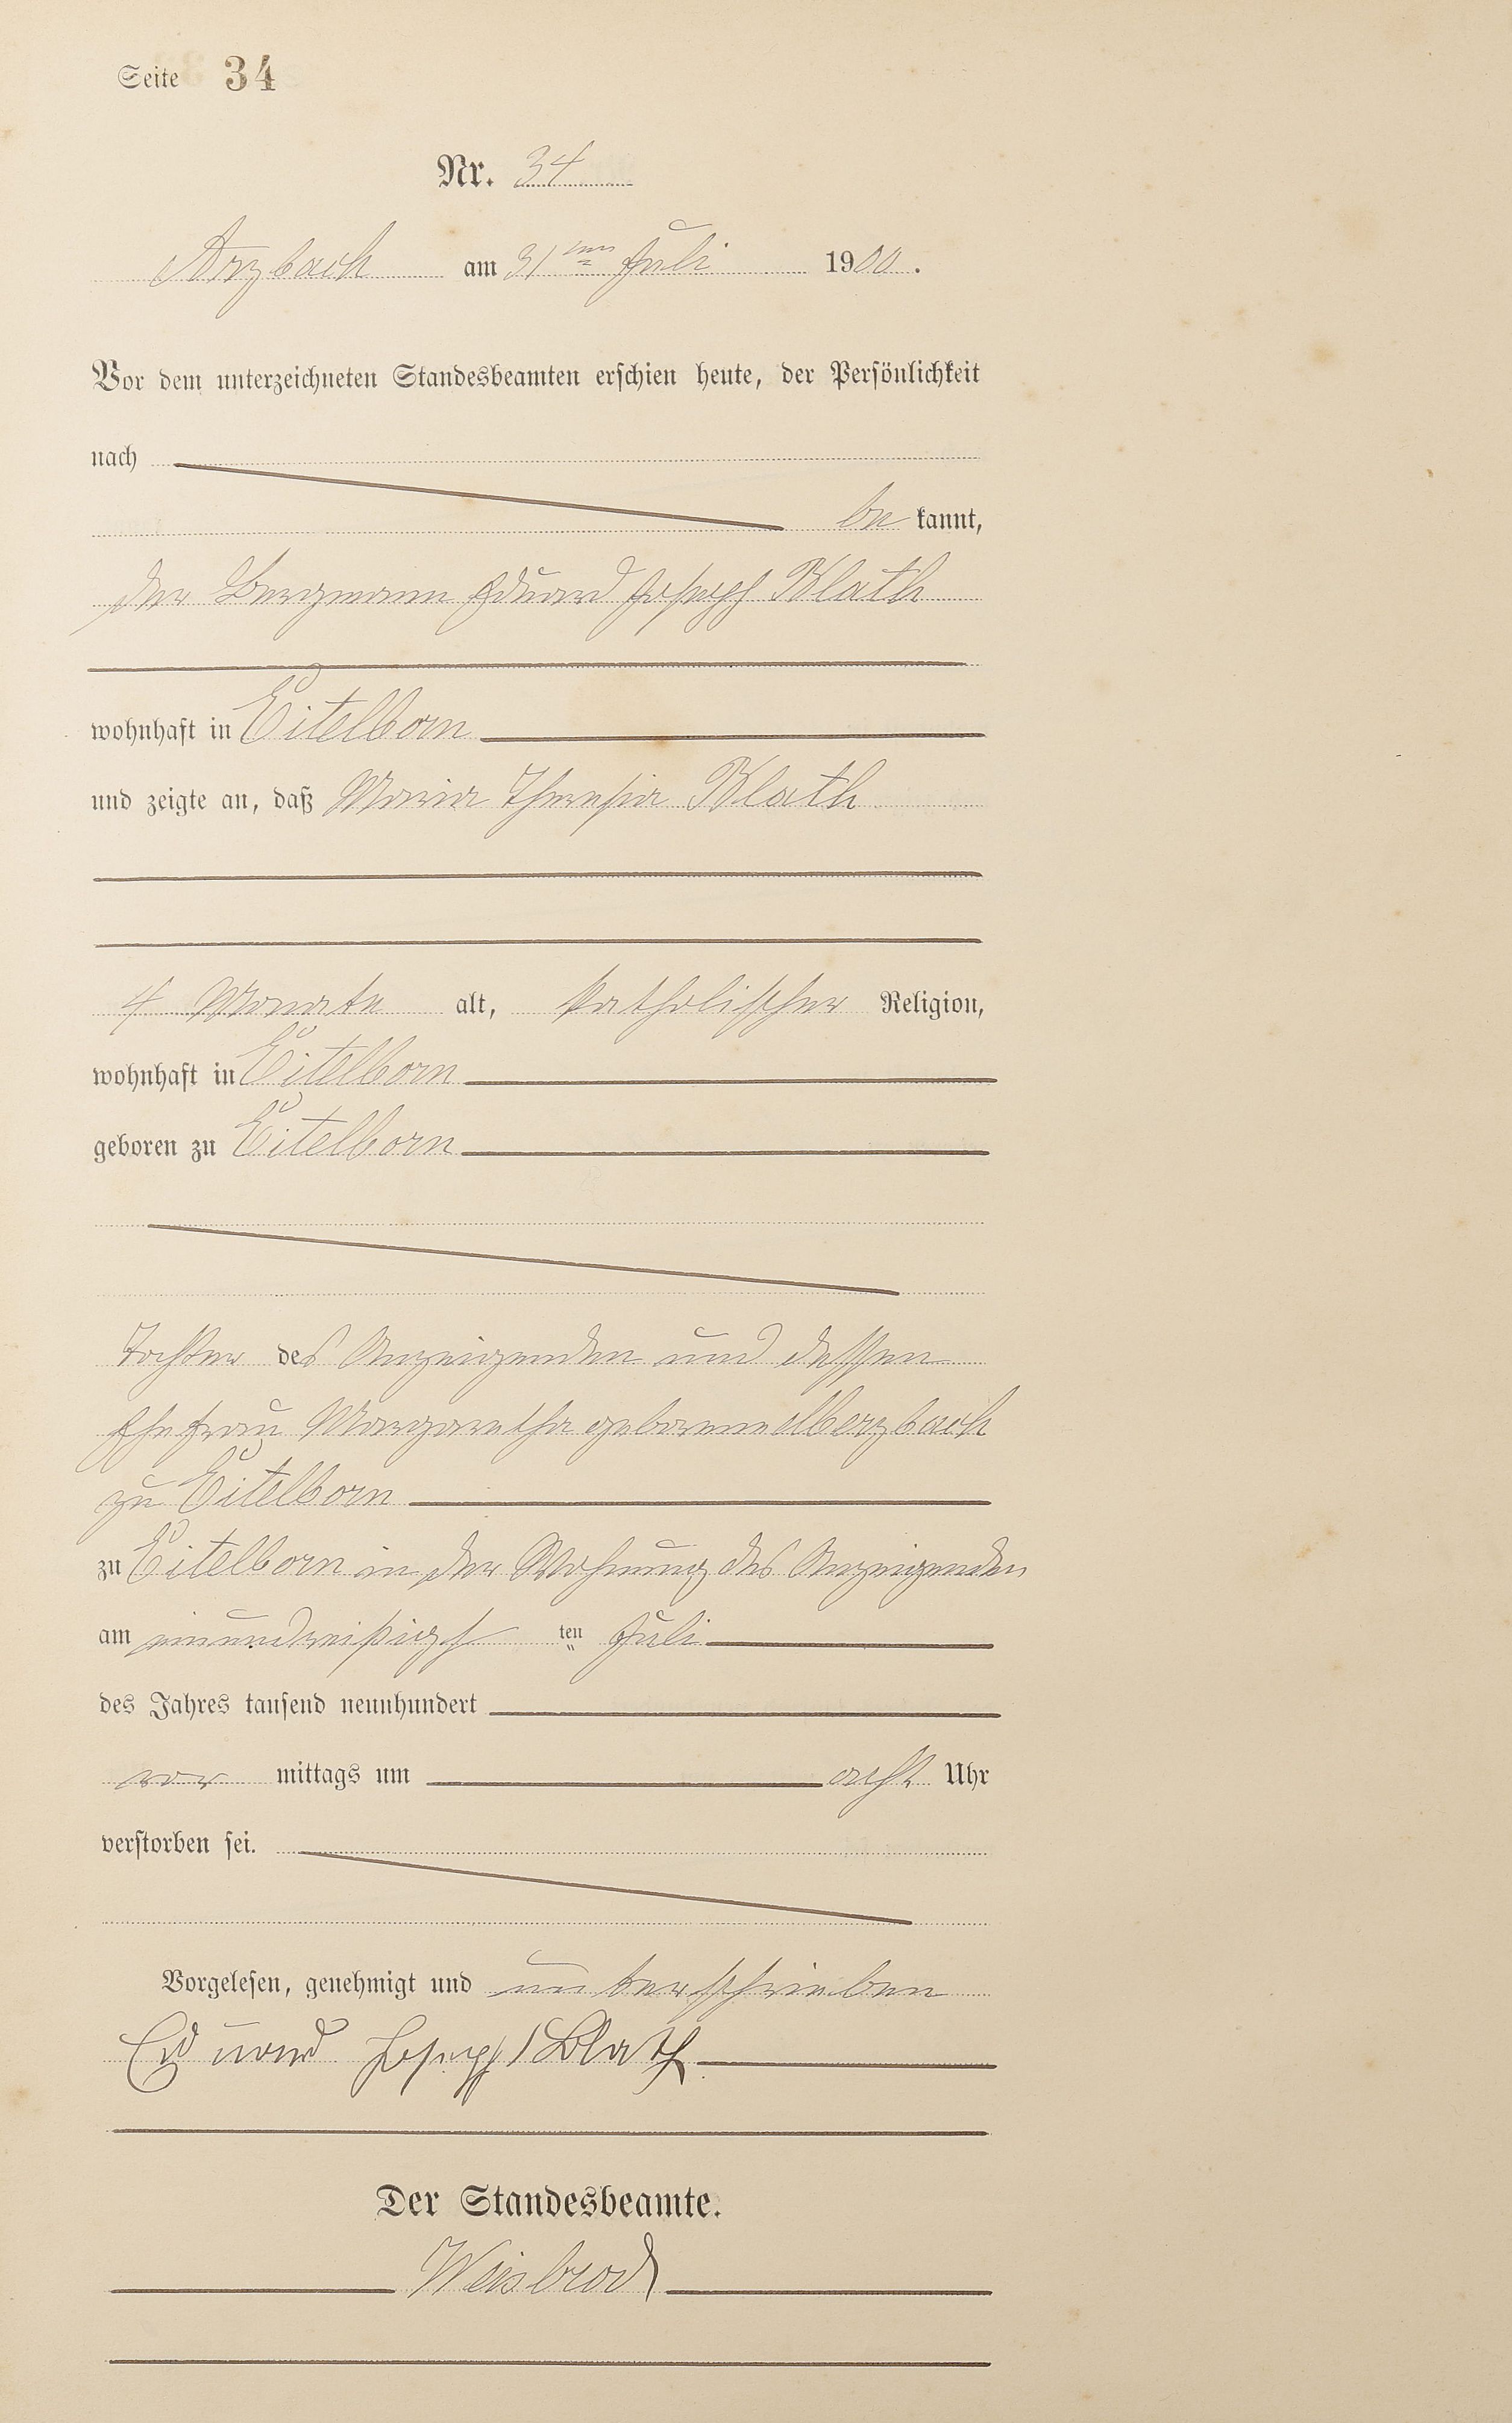 Seite 34
Nr. 34
Arzbach am 31ten Juli 1900.
Vor dem unterzeichneten Standesbeamten erschien heute, der Persönlichkeit
nach
be kannt,
der Bergmann Eduard Joseph Blath
wohnhaft in Eitelborn
und zeigte an, daß Maria Theresia Blath
4 Monate alt, katholischer Religion,
wohnhaft in Eitelborn
geboren zu Eitelborn
Tochter des Anzeigenden und dessen
Ehefrau Margaretha geborene
zu Eitelborn
zu Eitelborn in der Wohnung des Anzeigenden
am einundreißigst ten Juli
des Jahres tausend neunhundert
vor mittags um acht Uhr
verstorben sei.
Vorgelesen, genehmigt und unterschrieben
Eduard Joseph Blath
Der Standesbeamte.
Weisbrod